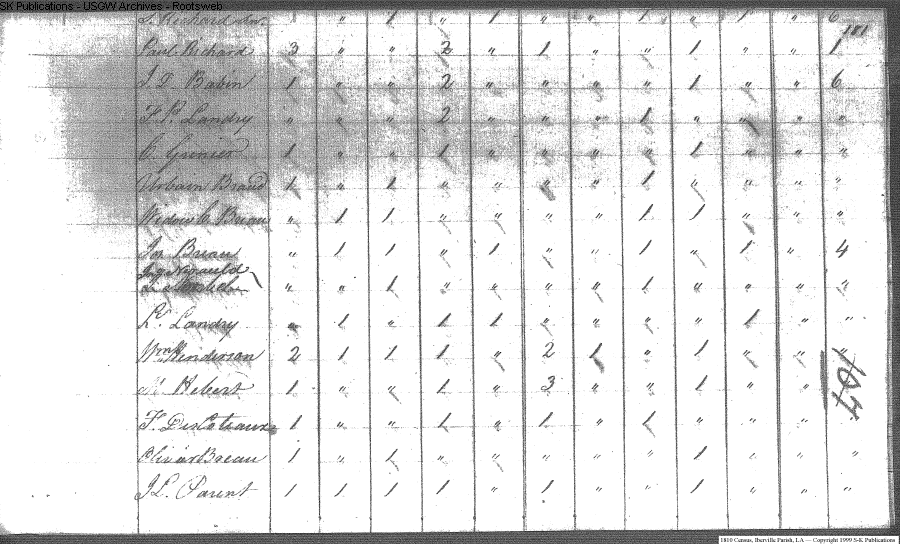 SK Publications - USGW Archives - Rootsweb
Richard 1 " 1 " 1 " " 1 " 1 " 6
181
Paul Richard 3 " " 2 " 1 " " 1 " " 1
J. D. Babin 1 " " 2 " " " " 1 " " 6
Landry " " " 2 " " " 1 " " " "
1 " " 1 " " " " 1 " " "
Urbain Braud 1 " 1 " " " " 1 " " " "
Widow C. Bruau " 1 1 " " " " 1 1 " " "
Jos Bruau " 1 1 " 1 " " 1 " 1 " 4
" " 1 " " " " 1 " " " "
Landry " 1 " 1 1 " " " " 1 " "
Wm Henderson 2 1 1 1 " 2 1 " 1 " " "
107
Hebert 1 " " 1 " 3 " " 1 " "
1 " " 1 " 1 " 1 " " " "
Olivar Breau 1 " 1 " " " " " 1 " " "
J L. Parent 1 1 1 1 " 1 " " 1 " " "
1810 Census, Iberville Parish, LA — Copyright 1999 S-K Publications